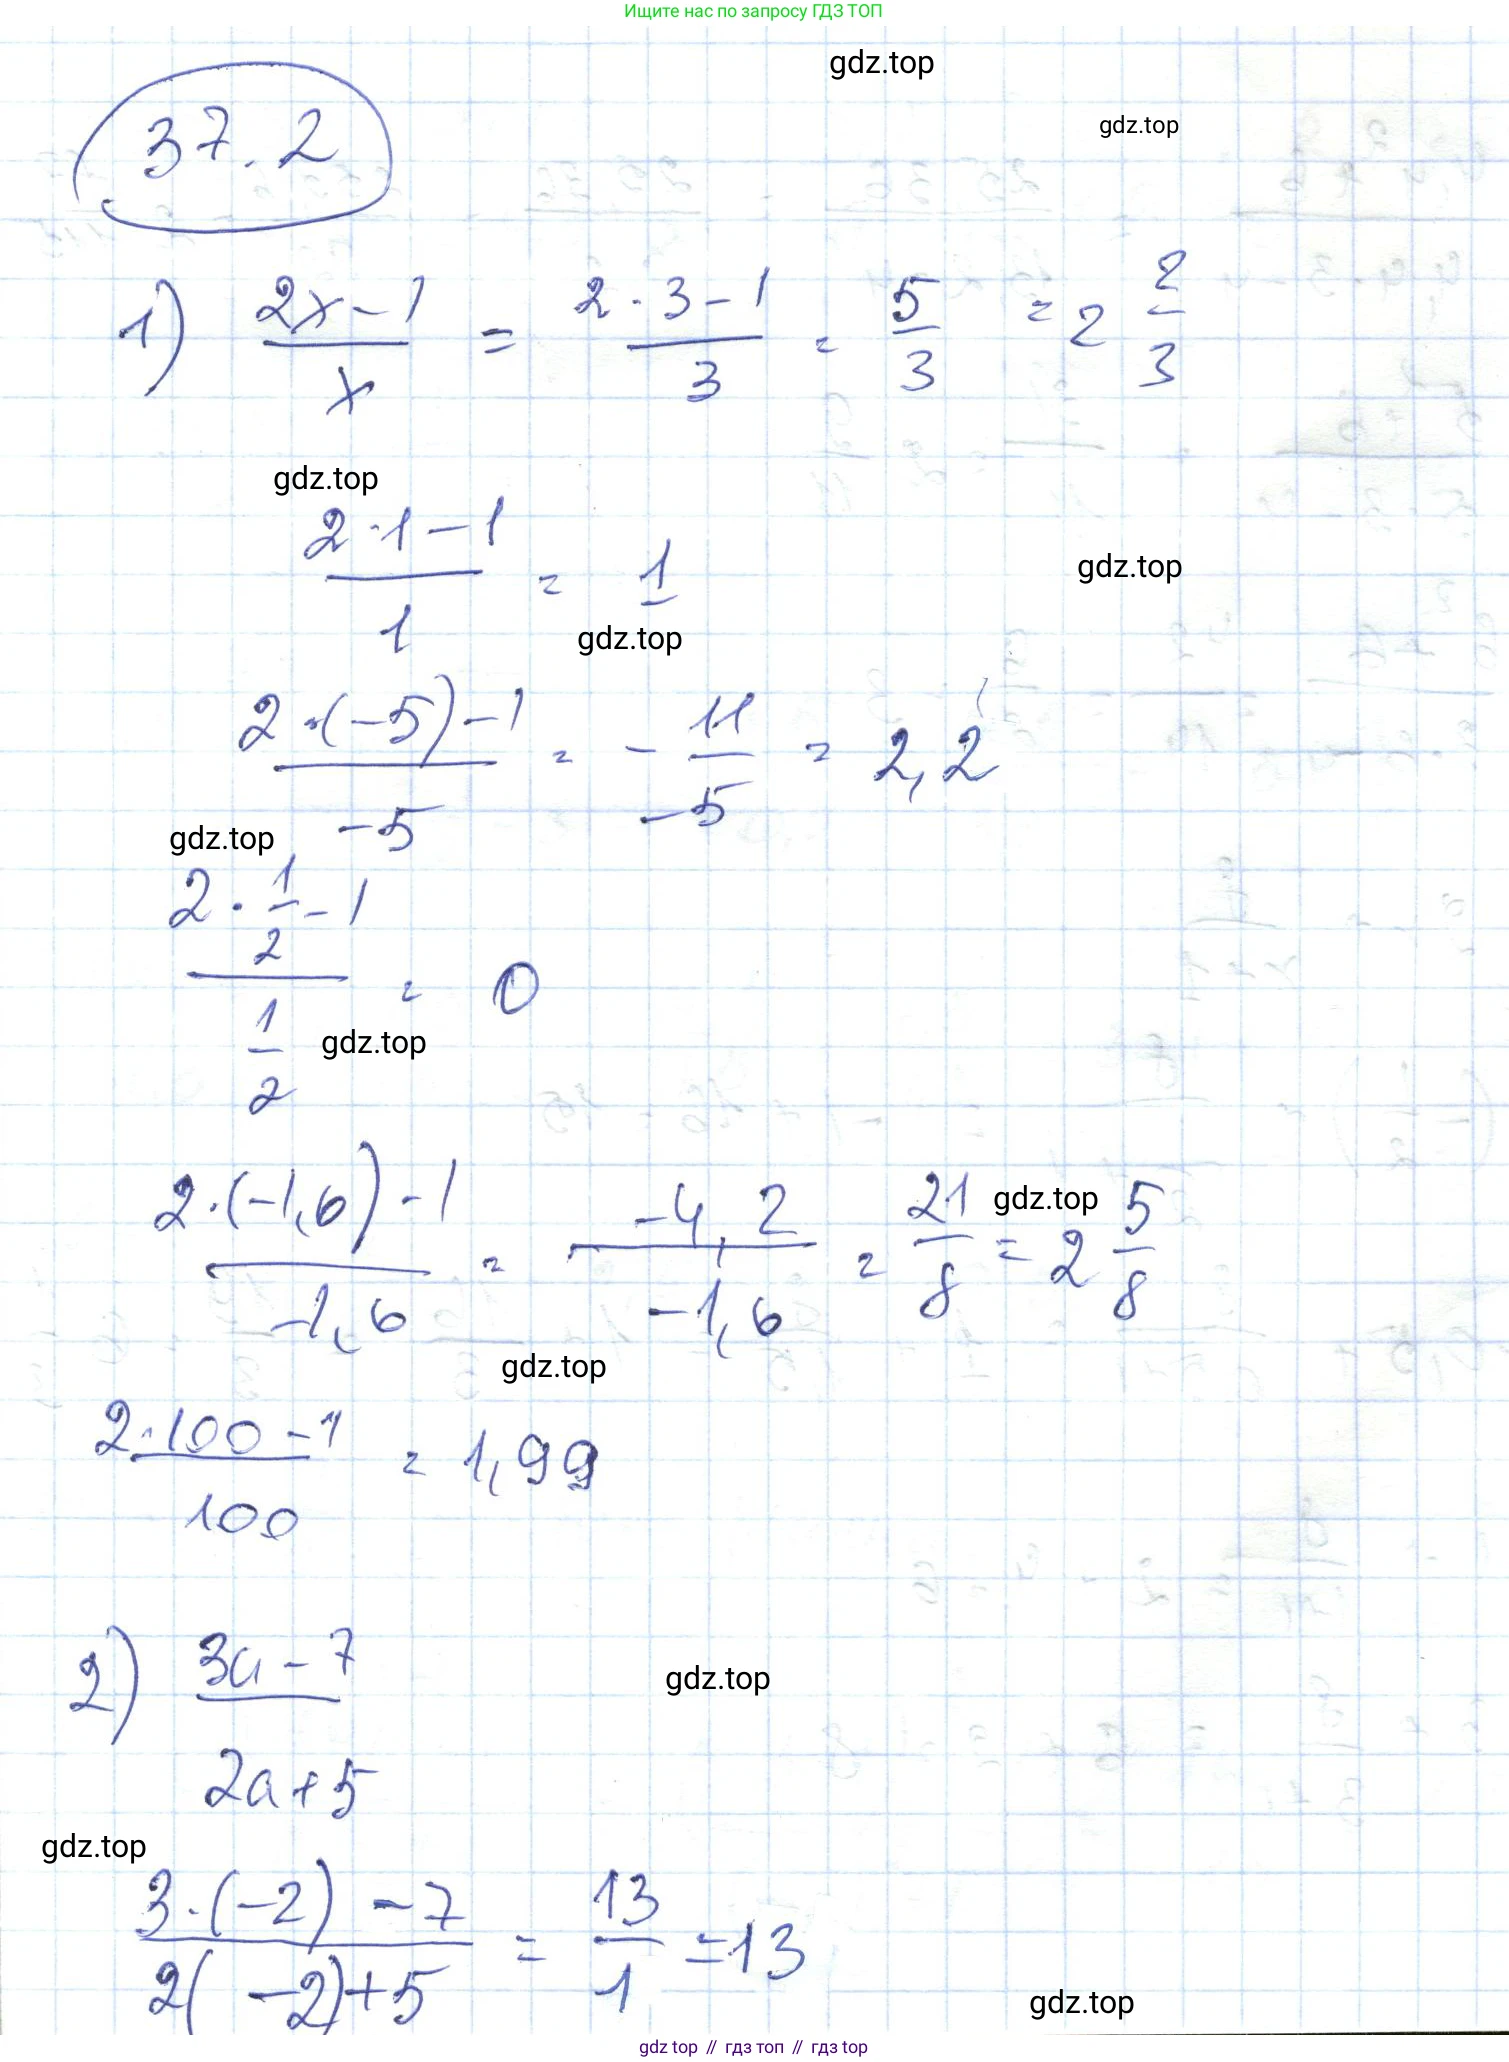 Ищите нас по запросу ГДЗ ТОП
gdz.top
gdz.top
37.2
1) (2x - 1)/x = (2 · 3 - 1)/3 = 5/3 = 2 2/3
gdz.top
(2 · 1 - 1)/1 = 1
gdz.top
gdz.top
(2 · (-5) - 1)/-5 = - 11/-5 = 2,2
gdz.top
(2 · 1/2 - 1)/(1/2) = 0
gdz.top
(2 · (-1,6) - 1)/-1,6 = -4,2/-1,6 = 21/8 = 2 5/8
gdz.top
gdz.top
(2 · 100 - 1)/100 = 1,99
2) (3a - 7)/(2a + 5)
gdz.top
gdz.top
(3 · (-2) - 7)/(2(-2) + 5) = 13/1 = 13
gdz.top
gdz top // гдз топ // гдз top